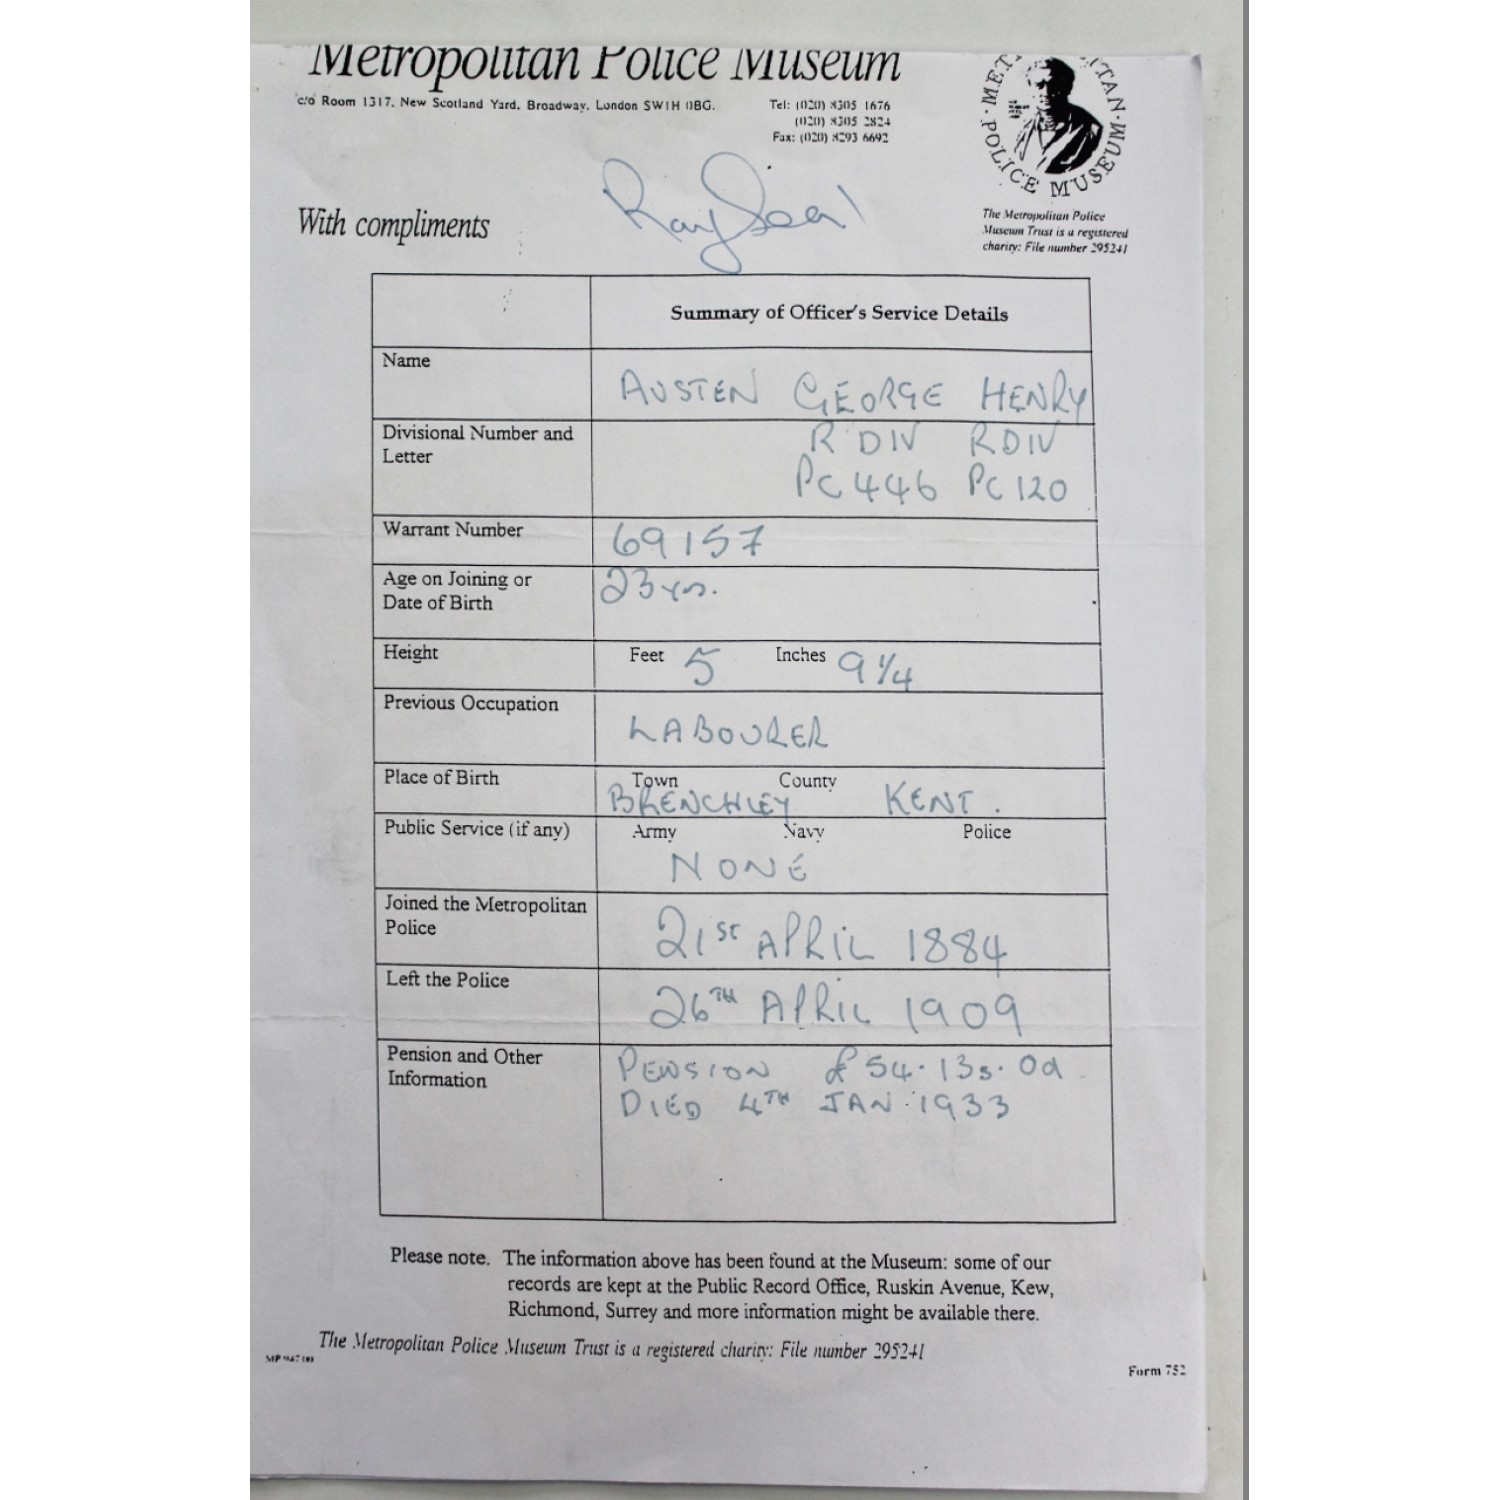 Metropolitan Police Museum
c/o Room 1317, New Scotland Yard, Broadway, London SW1H 0BG.
Tel: (020) 8305 1676
(020) 8305 2824
Fax: (020) 8293 6692
METROPOLITAN · POLICE MUSEUM ·
Ray Seal
With compliments
The Metropolitan Police
Museum Trust is a registered
charity: File number 295241
Summary of Officer's Service Details
Name
AUSTEN GEORGE HENRY
Divisional Number and
Letter
R DIV R DIV
PC 446 PC 120
Warrant Number
69157
Age on Joining or
Date of Birth
23 yrs.
Height
Feet 5 Inches 9 1/4
Previous Occupation
LABOURER
Place of Birth
Town County
BRENCHLEY KENT.
Public Service (if any)
Army Navy Police
NONE
Joined the Metropolitan
Police
21ST APRIL 1884
Left the Police
26TH APRIL 1909
Pension and Other
Information
PENSION £54.13s.0d.
DIED 4TH JAN 1933
Please note. The information above has been found at the Museum: some of our
records are kept at the Public Record Office, Ruskin Avenue, Kew,
Richmond, Surrey and more information might be available there.
The Metropolitan Police Museum Trust is a registered charity: File number 295241
Form 752